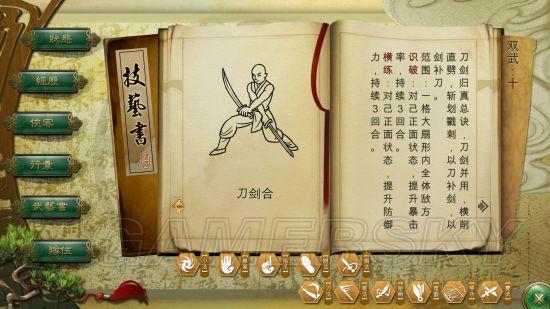 狀態
經歷
俠客
行囊
武藝書
隊伍
技藝書
刀劍合
双武：十
刀剑归真总诀，刀剑并用，横削
直劈，斩划戳刺，以刀补剑，以
剑补刀。
范围：一格大扇形内全体敌方
识破：对己正面状态，提升暴击
率，持续3回合。
横练：对己正面状态，提升防御
力，持续3回合。
GAMERSKY